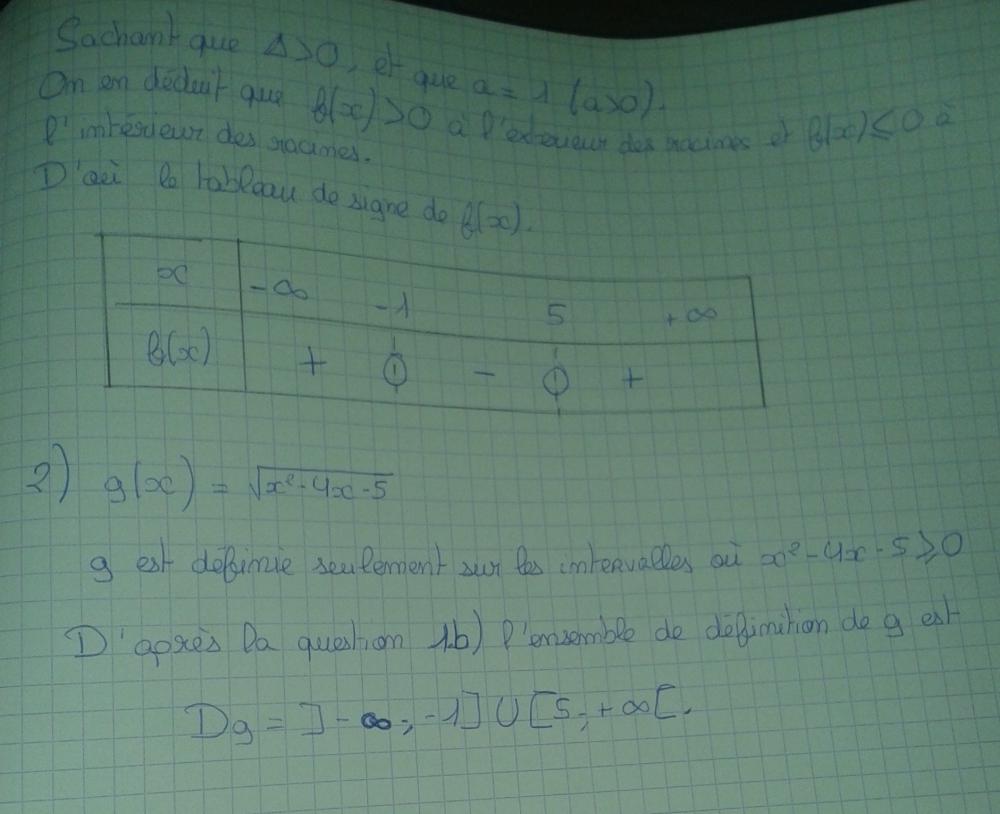 Sachant que Δ>0, et que a = 1 (a>0).
On en déduit que f(x) >0 à l'extérieur des racines et f(x) ≤0 à
l'intérieur des racines.
D'où le tableau de signe de f(x).
x -∞ -1 5 +∞
f(x) + 0 - 0 +
2) g(x) = √x²-4x-5
g est définie seulement sur les intervalles où x²-4x-5≥0
D'après la question 1b) l'ensemble de définition de g est
Dg = ]-∞; -1] U [5; +∞[.